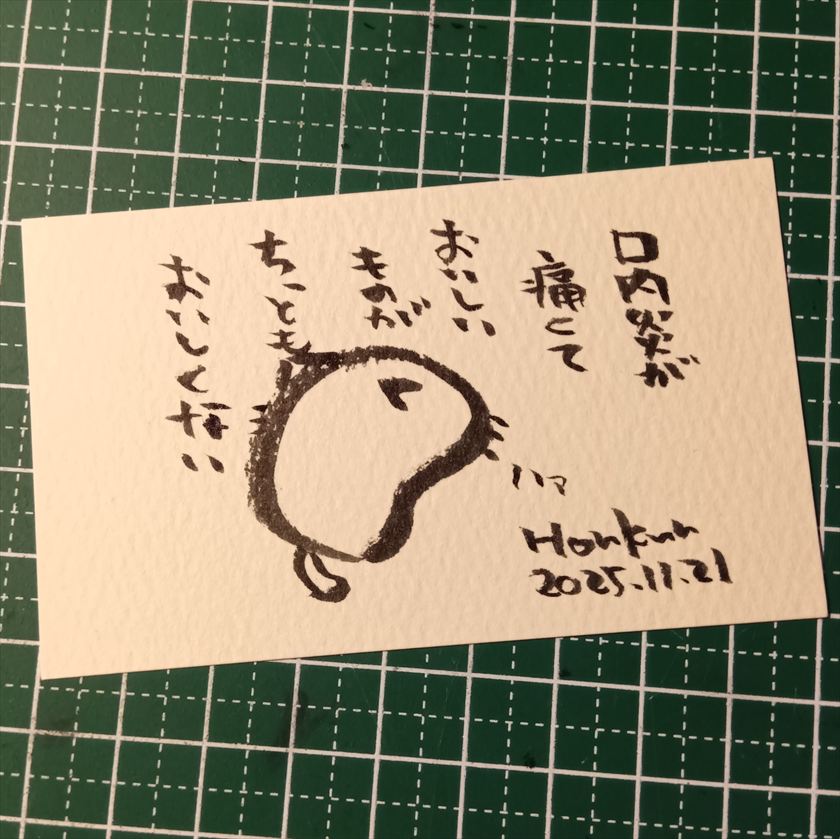 口内炎が
痛くて
おいしい
ものが
ちっとも
おいしくない
ハァ
Honkun
2025.11.21